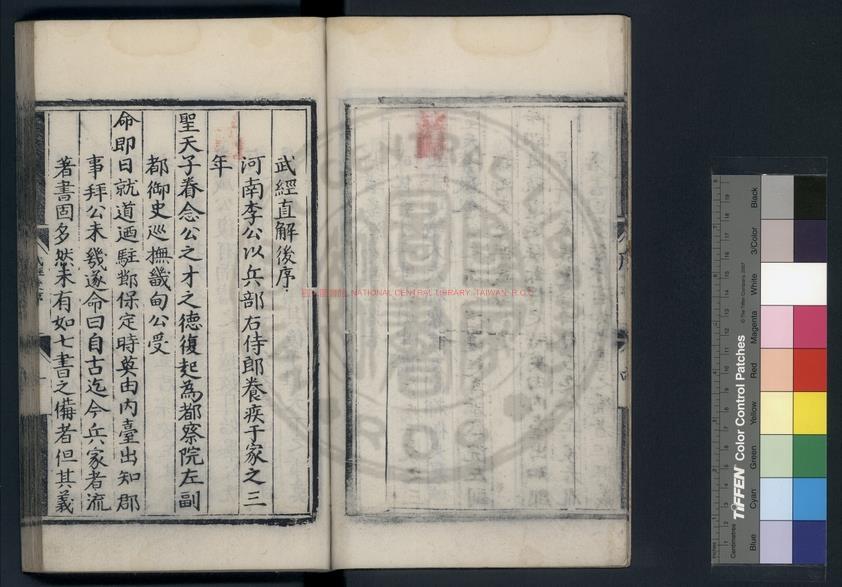 武經直解後序
河南李公以兵部右侍郎養疾于家之三
年
聖天子眷念公之才之德復起為都察院左副
都御史巡撫畿甸公受
命即日就道迺駐節保定時英由內臺出知郡
事拜公未幾遂命曰自古迄今兵家者流
著書固多然未有如七書之備者但其義
NATIONAL CENTRAL LIBRARY, TAIWAN, R.O.C
TIFFEN Color Control Patches
Centimetres
Blue
Cyan
Green
Yellow
Red
Magenta
White
3/Color
Black